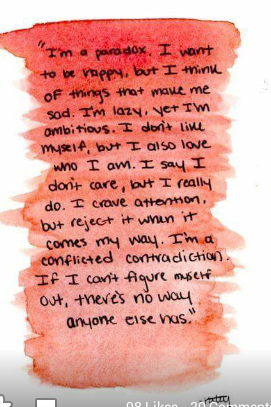 "I'm a paradox. I want
to be happy, but I think
of things that make me
sad. I'm lazy, yet I'm
ambitious. I don't like
myself, but I also love
who I am. I say I
don't care, but I really
do. I crave attention,
but reject it when it
comes my way. I'm a
conflicted contradiction.
If I can't figure myself
out, there's no way
anyone else has."
98 Likes 20 Comments